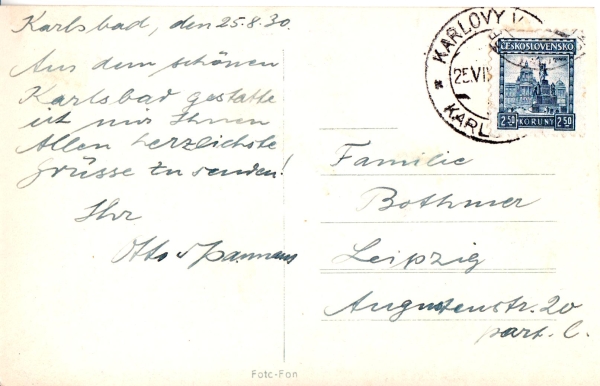 Karlsbad, den 25.8.30.
Aus dem schönen
Karlsbad gestatte
ich mir Ihnen
Allen herzlichste
Grüsse zu senden!
Ihr
Otto
KARLOVY V
25.VII
KARL
ČESKOSLOVENSKO
2·50 KORUNY 2·50
Familie
Bothmer
Leipzig
Augustenstr. 20
part. l.
Fotc-Fon